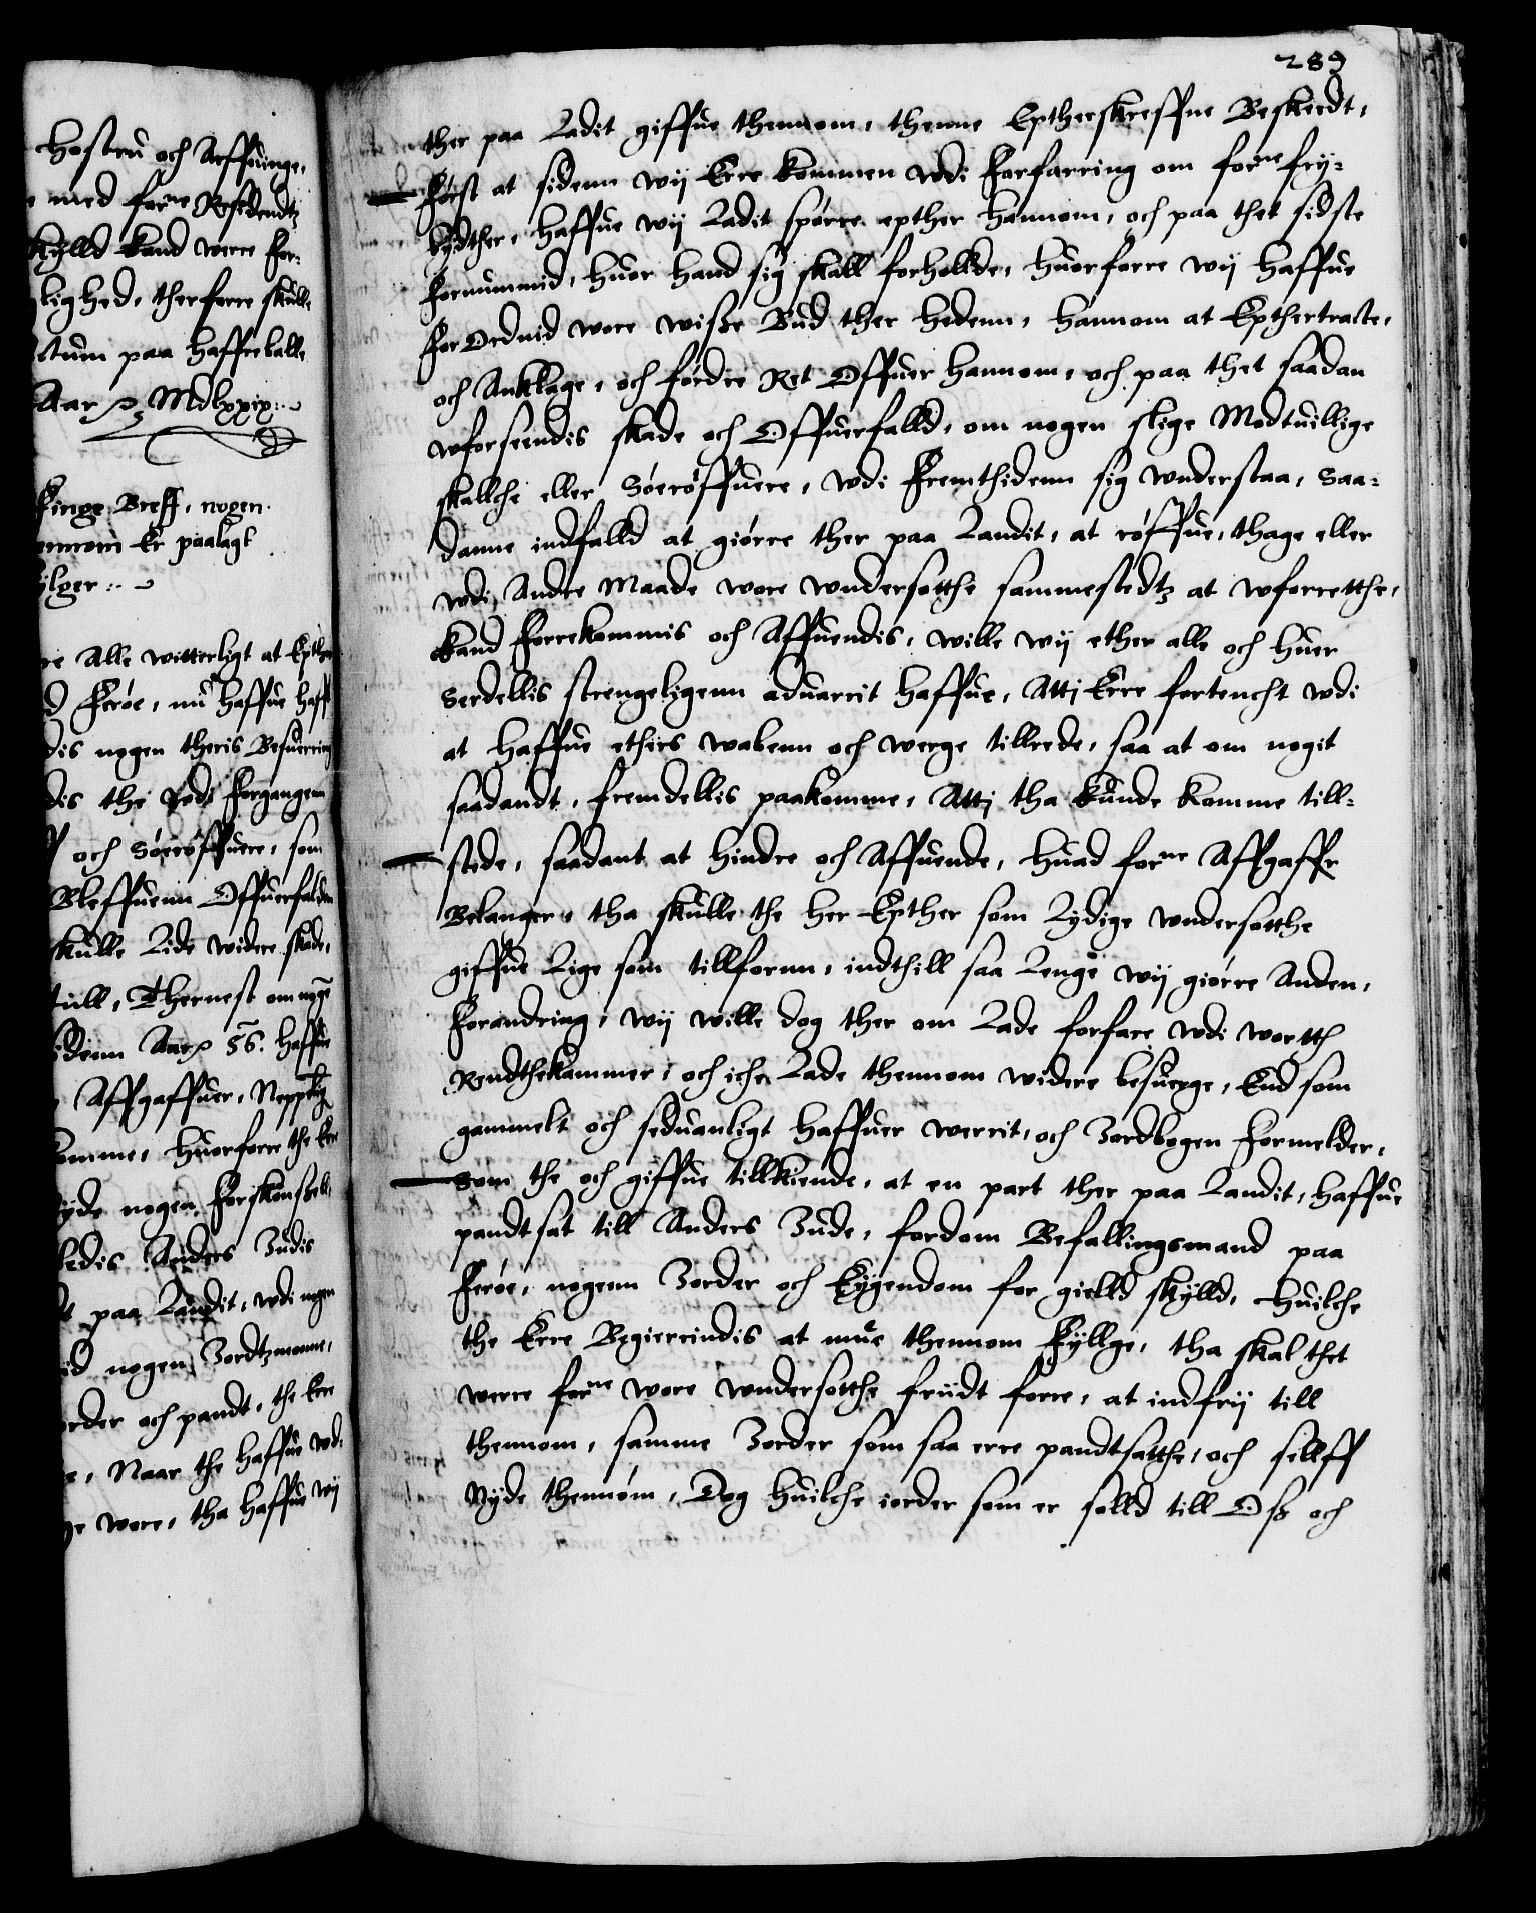 hostru och Arffuinge,
med forne Residendtz
skylld kand were for-
lighed, therforre skulle
Actum paa Haffreballe
Aar etc. Mdlxxix.
kinge Breff, nogen
ennom er paalagt
ylger
re Alle witterligt at Epther
d Feröe, nu haffue haff
dis nogen theris Besuering
dis the vdi Forgangenn
och Söeröffuere, som
Bleffuenn Offuerfalden
skulle Lide widere skade,
till, Thernest om noge
sidenn Aar etc. 56. haffue
Affgaffuer, Neppelig
omme, huorforre the Ere
yde nogen Forskonsell
ledis Anders Judis
t paa Landit, wdi nogen
id nogen Jordtzmonne,
order och pandt, the Ere
e, Naar the haffue wd-
ge wore, tha haffue wij
289
ther paa Ladit giffue thennom, thenne Eptherskreffne Beskeedt,
Först at sidenn wij Ere kommen wdi Forfarring om forne fry-
bydther, haffue wij Ladit spörre epther hannom, och paa thet sidste
Fornummid, huor hand sig skall forhollde, huorforre wij haffue
for Ordnid wore wisse Bud ther hedenn, hannom at Epthertracte,
och Anklage, och fördre Ret Offuer hannom, och paa thet saadan
wforseendis skade och Offuerfalld, om nogen slige Modtuillige
skallche eller Söeröffuere, wdi Fremthidenn sig wnderstaa, Saa-
danne indfalld at giörre ther paa Landit, at röffue, thage eller
wdi Andre Maade wore wndersotthe sammestedtz at wforretthe,
kand Forrekommis och Affuendis, wille wij ether alle och huer
Serdellis strengeligenn aduarrit haffue, Atti Erre fortencht wdi
at haffue ethers wabenn och werge tillrede, saa at om nogit
saadandt, fremdellis paakomme, Atti tha kunde komme till-
stede, saadant at hindre och Affuende, Huad forne Affgaffr
Belanger, tha skulle the her Epther som Lydige wndersotthe
giffue Lige som tillfornn, indthill saa Lenge wij giörre Anden,
Forandring, wij wille dog ther om Lade forfare wdi wortth
Rendthekammer, och iche Lade thennom widere besuerge, End som
gammelt och seduanligt haffuer werrit, och Jordbogen Formelder,
Som the och giffue tillkiende, at en part ther paa Landit, haffue
pandtsat till Anders Jude, fordom Befallingsmand paa
Feröe, nogenn Jorder och Eygendom for gielld skylld, huilche
the Erre Begierrindis at mue thennom Fyllge, tha skal thet
werre forne wore wndersotthe friidt forre, at indfrij till
thennom, samme Jorder som saa erre pandtsatthe, och sellff
Nyde thennöm, Dog huilche iorder som er solld till Oss och